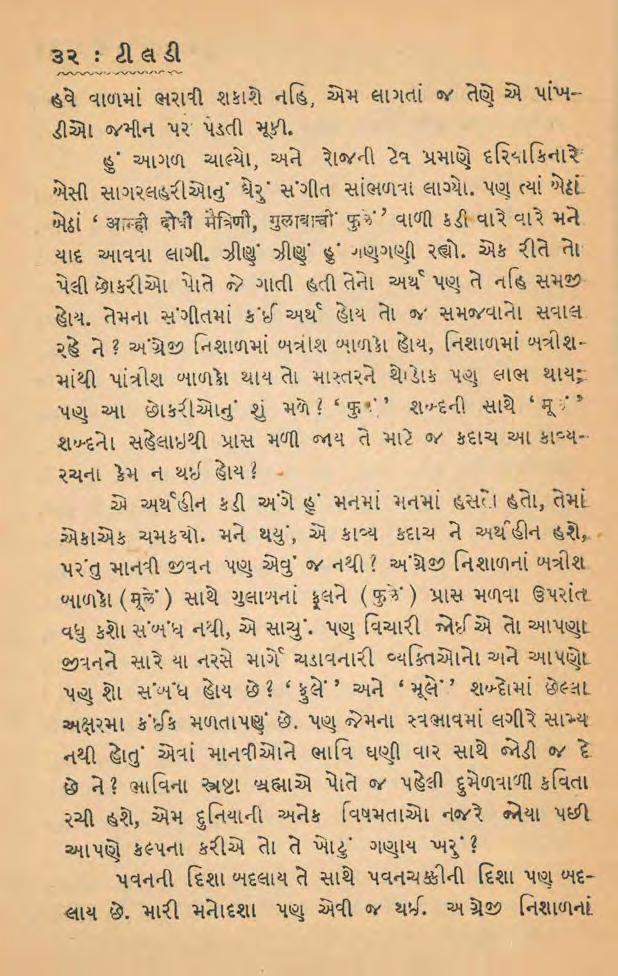 ૩૨ : ટી લ ડી
હવે વાળમાં ભરાવી શકાશે નહિ, એમ લાગતાં જ તેણે એ પાંખ-
ડીઓ જમીન પર પડતી મૂકી.
હું આગળ ચાલ્યો, અને રોજની ટેવ પ્રમાણે દરિયાકિનારે
બેસી સાગરલહરીઓનું ઘેરું સંગીત સાંભળવા લાગ્યો. પણ ત્યાં બેઠાં
બેઠાં ‘ आम्ही दोघी मैत्रिणी, गुलाबाचीं फुलें ’ વાળી કડી વારે વારે મને
યાદ આવવા લાગી. ઝીણું ઝીણું હું ગણગણી રહ્યો. એક રીતે તો
પેલી છોકરીઓ પોતે જે ગાતી હતી તેનો અર્થ પણ તે નહિ સમજી
હોય. તેમના સંગીતમાં કંઈ અર્થ હોય તો જ સમજવાનો સવાલ
રહે ને ? અંગ્રેજી નિશાળમાં બત્રીશ બાળકો હોય, નિશાળમાં બત્રીશ-
માંથી પાંત્રીશ બાળકો થાય તો માસ્તરને થોડોક પણ લાભ થાય;
પણ આ છોકરીઓનું શું મળે ? ‘ फुलें ’ શબ્દની સાથે ‘ मूलें ’
શબ્દનો સહેલાઇથી પ્રાસ મળી જાય તે માટે જ કદાચ આ કાવ્ય-
રચના કેમ ન થઇ હોય ?
એ અર્થહીન કડી અંગે હું મનમાં મનમાં હસતો હતો, તેમાં
એકાએક ચમકયો. મને થયું, એ કાવ્ય કદાચ ને અર્થહીન હશે,
પરંતુ માનવી જીવન પણ એવું જ નથી ? અંગ્રેજી નિશાળનાં બત્રીશ
બાળકો ( मूलें ) સાથે ગુલાબનાં ફૂલને ( फुलें ) પ્રાસ મળવા ઉપરાંત
વધુ કશો સંબંધ નથી, એ સાચું. પણ વિચારી જોઈએ તો આપણા
જીવનને સારે યા નરસે માર્ગે ચડાવનારી વ્યક્તિઓનો અને આપણો
પણ શો સંબંધ હોય છે ? ‘ ફુલેં ’ અને ‘ મૂલેં ’ શબ્દોમાં છેલ્લા
અક્ષરમા કંઈક મળતાપણું છે. પણ જેમના સ્વભાવમાં લગીરે સામ્ય
નથી હોતું એવાં માનવીઓને ભાવિ ઘણી વાર સાથે જોડી જ દે
છે ને ? ભાવિના સ્રષ્ટા બ્રહ્માએ પોતે જ પહેલી દુમેળવાળી કવિતા
રચી હશે, એમ દુનિયાની અનેક વિષમતાઓ નજરે જોયા પછી
આપણે કલ્પના કરીએ તો તે ખોટું ગણાય ખરું ?
પવનની દિશા બદલાય તે સાથે પવનચક્કીની દિશા પણ બદ-
લાય છે. મારી મનોદશા પણ એવી જ થઈ. અંગ્રેજી નિશાળનાં